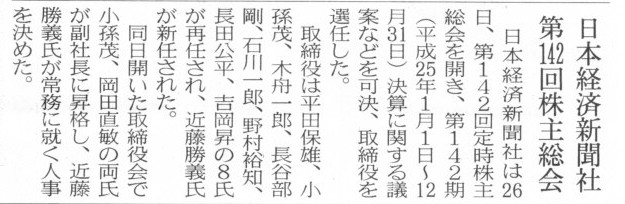 日本経済新聞社
第142回株主総会
日本経済新聞社は26
日、第１４２回定時株主
総会を開き、第１４２期
（平成25年１月１日～12
月31日）決算に関する議
案などを可決、取締役を
選任した。
取締役は平田保雄、小
孫茂、木舟一郎、長谷部
剛、石川一郎、野村裕知、
長田公平、吉岡昇の８氏
が再任され、近藤勝義氏
が新任された。
同日開いた取締役会で
小孫茂、岡田直敏の両氏
が副社長に昇格し、近藤
勝義氏が常務に就く人事
を決めた。